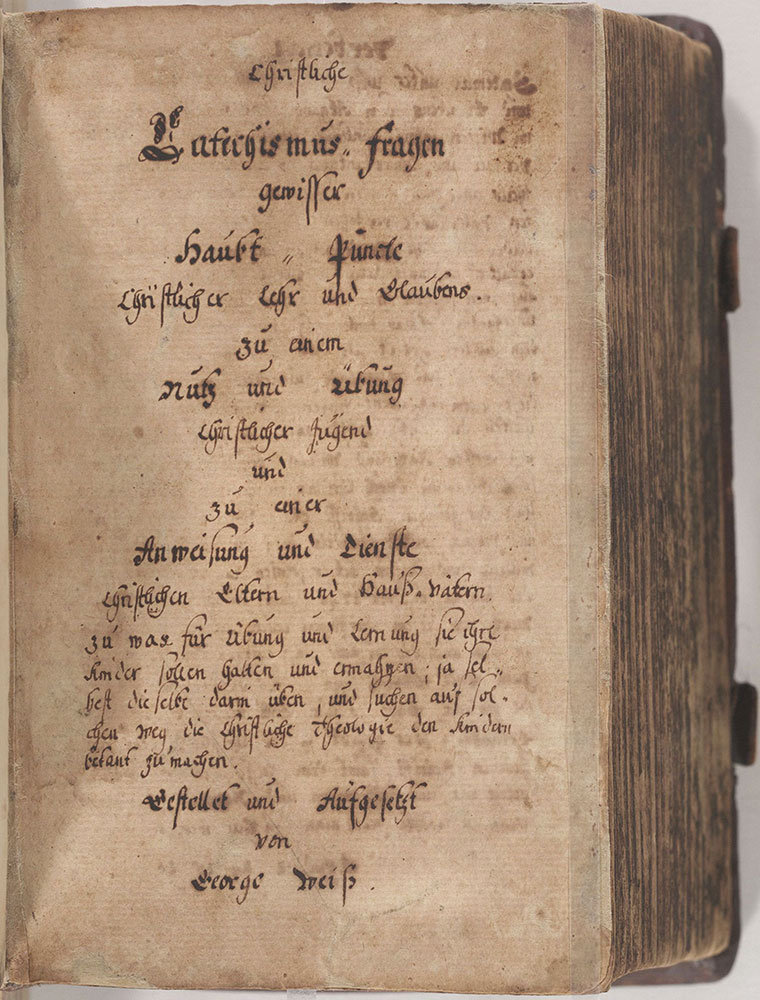 Christliche
Catechismus„ fragen
gewisser
Haubt „ Puncte
Christlicher Lehr und Glaubens.
zu einem
Nutz und Übung
Christlicher Jugend
und
zu einer
Anweisung und Dienste
Christlichen Eltern und Hauß-vätern.
zu was für Übung und Lernung sie ihre
Kinder sollen halten und ermahnen; ja sel„
best dieselbe darin üben, und suchen auf sol-
chen weg die Christliche Theologie den Kindern
bekant zu machen.
Gestellet und Aufgesetzt
von
George Weiß.